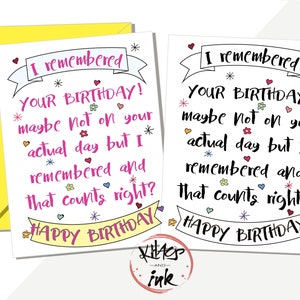 I remembered
YOUR BIRTHDAY!
maybe not on your
actual day but I
remembered and
that counts right?
HAPPY BIRTHDAY
I remembered
YOUR BIRTHDAY!
maybe not on your
actual day but I
remembered and
that counts right?
HAPPY BIRTHDAY
KHAOS
AND
ink